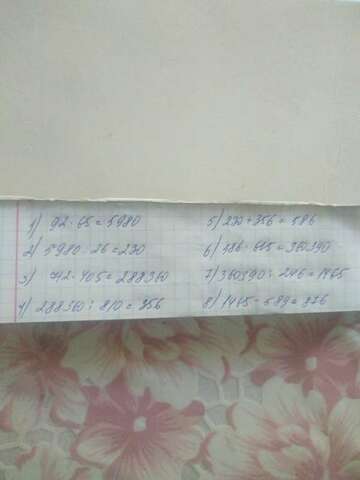 1) 92·65=5980
2) 5980:26=230
3) 712·405=288360
4) 288360:810=356
5) 230+356=586
6) 586·615=360390
7) 360390:246=1465
8) 1465-589=876